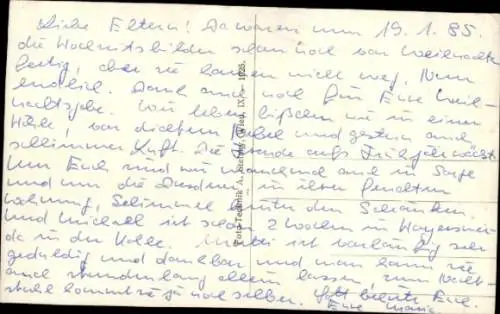 Liebe Eltern! Da waren nun 19.1.85.
die Hochzeitsbilder schon noch vor Weihnachten
fertig, aber sie kamen nicht weg. Nun
endlich. Dank auch noch für Eure Weih-
nachtsgabe. Wir leben bißchen wie in einer
Höhle, vor dichtem Nebel und gestern auch
schlimmer Luft. Die Freude aufs Frühjahr wächst
Um Euch sind wir manchmal auch in Sorge
und um die in ihrer feuchten
Wohnung, Schimmel hinter den Schränken.
Und Michael ist schon 2 Wochen in Hoyerswerda
da in der Kohle. ist vorläufig sehr
geduldig und dankbar und man kann sie
auch stundenlang allein lassen, zum
kommt sie ja noch selber. Gott Euch.
Eure Maria
Foto-Technik A.